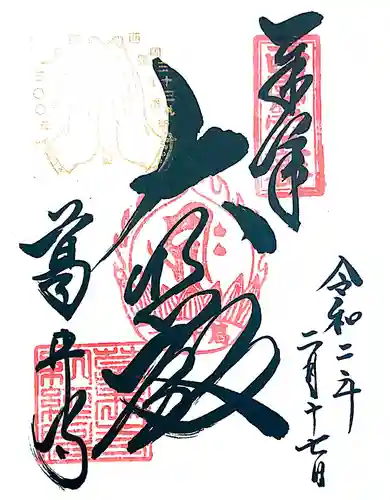 奉拝
令和二年
二月十七日
大悲殿
葛井寺